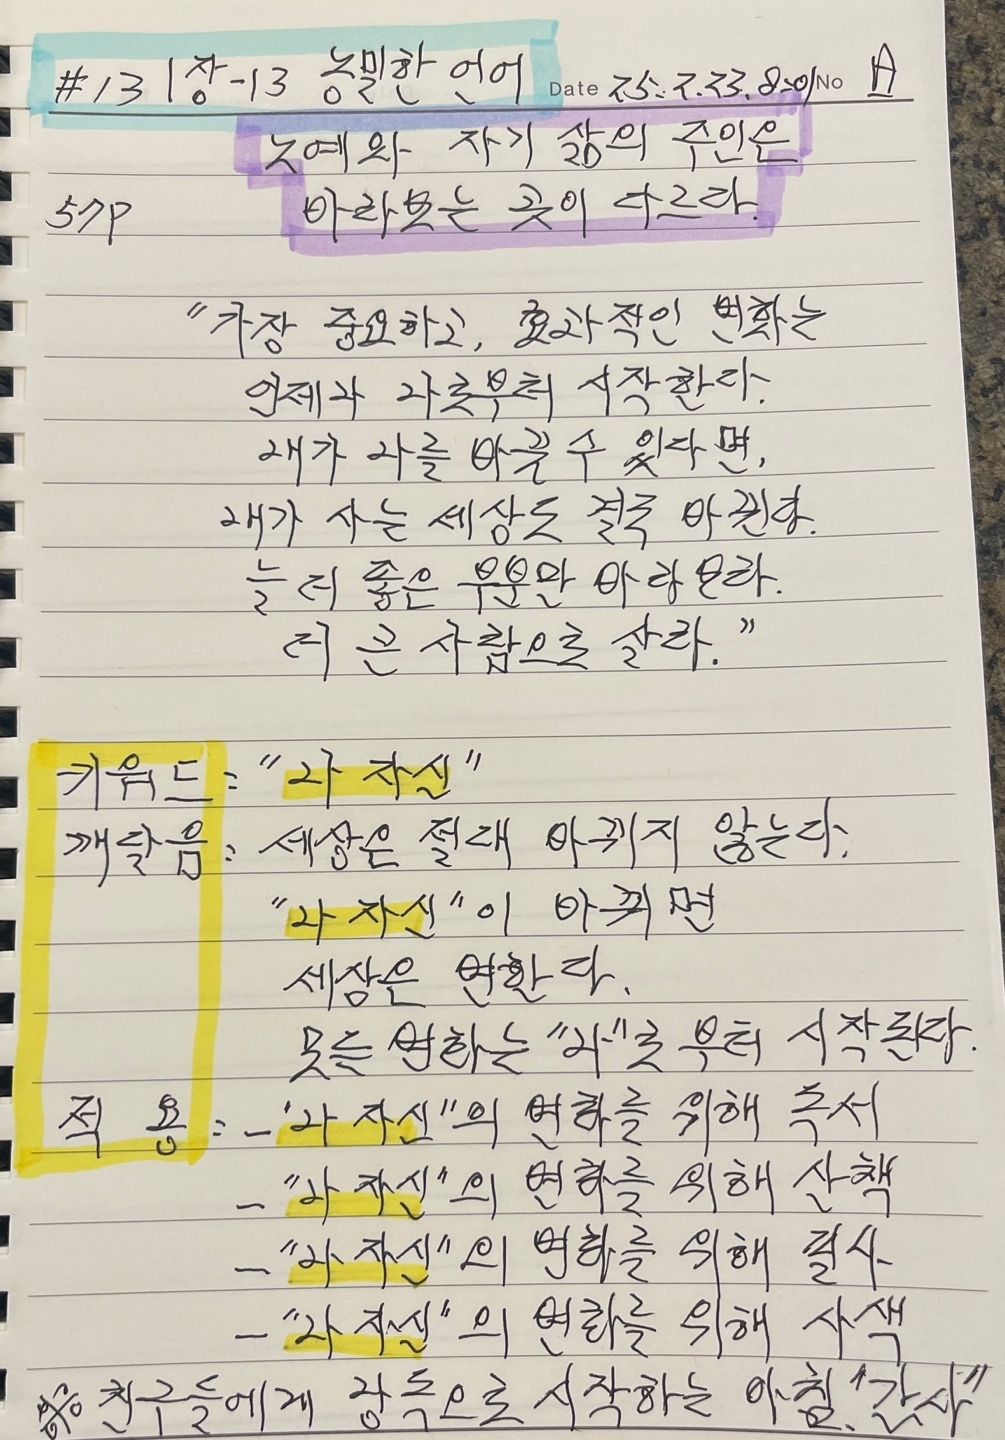 #13 1장-13 농밀한 언어 Date 25. 2. 23. 8:01 No A
노예와 자기 삶의 주인은
57P 바라보는 곳이 다르다.
"가장 중요하고, 효과적인 변화는
언제나 나로부터 시작한다.
내가 나를 바꿀 수 있다면,
내가 사는 세상도 결국 바뀐다.
늘 더 좋은 부분만 바라보라.
더 큰 사람으로 살라."
키워드 : "나 자신"
깨달음 : 세상은 절대 바뀌지 않는다.
"나 자신"이 바뀌면
세상은 변한다.
모든 변화는 "나"로부터 시작된다.
적 용 : - "나 자신"의 변화를 위해 독서
- "나 자신"의 변화를 위해 산책
- "나 자신"의 변화를 위해 필사
- "나 자신"의 변화를 위해 사색
※ 친구들에게 낭독으로 시작하는 아침. "감사"